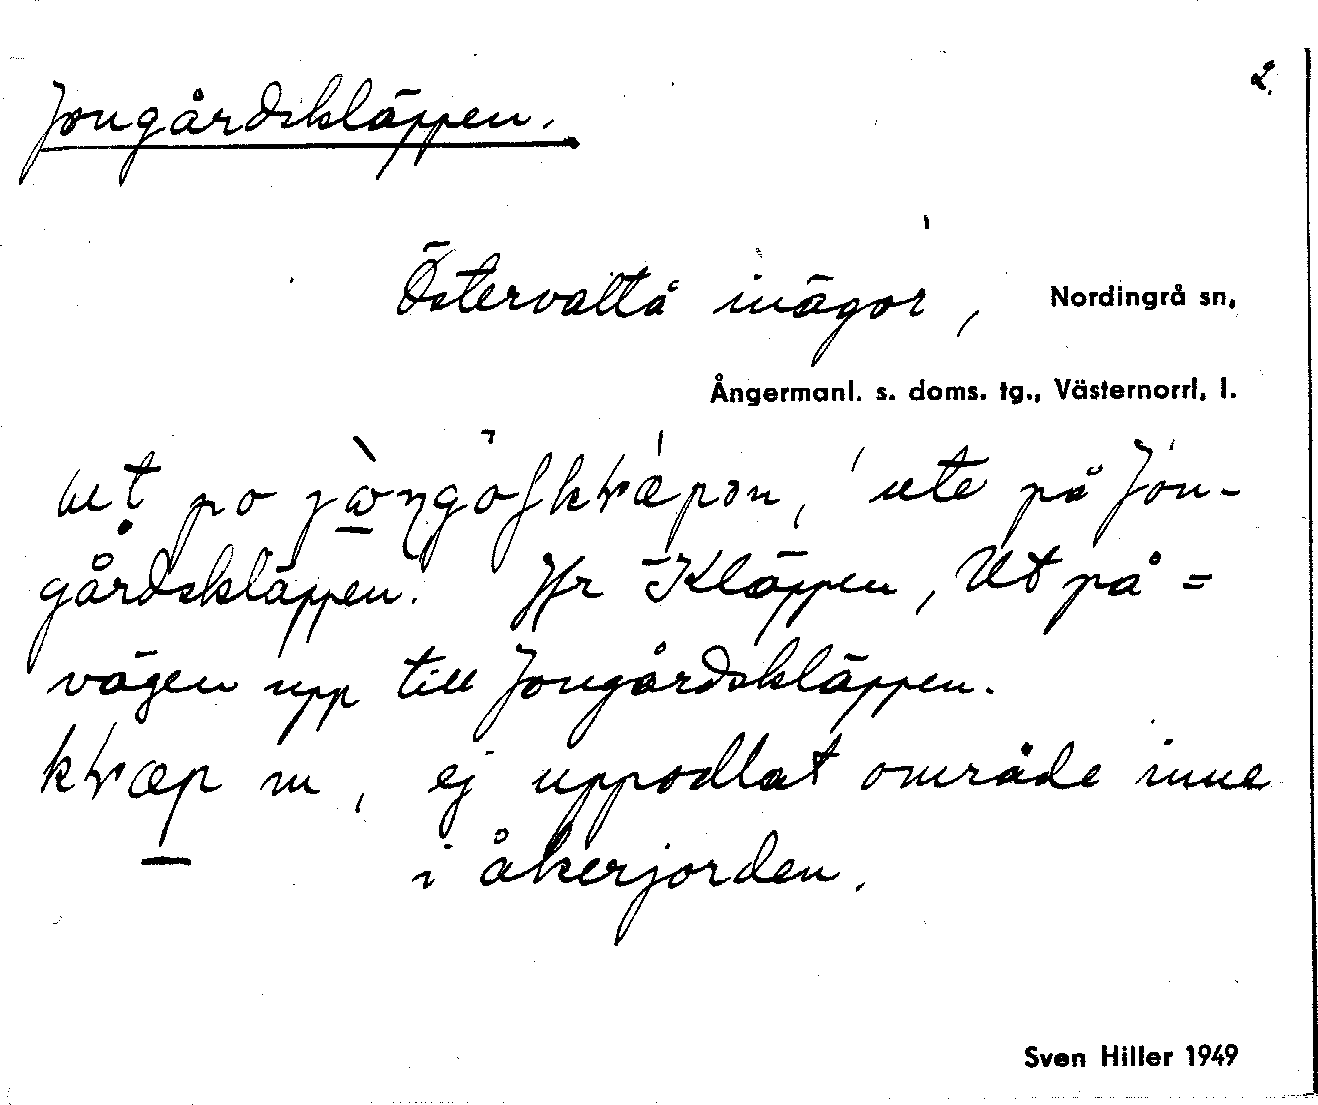 2.
Jongårdskläppen.
Östervattå inägor, Nordingrå sn,
Ångermanl. s. doms. tg., Västernorrl. l.
ut po jωŋgoʃkɽæpən, 'ute på Jon-
gårdskläppen.' Jfr Kläppen, Ut på =
vägen upp till Jongårdskläppen.
kɽæp m, ej uppodlat område inne
i åkerjorden.
Sven Hiller 1949